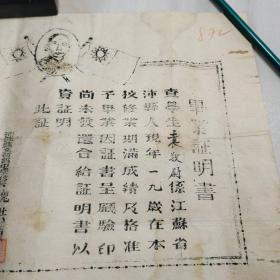 畢業証明書
查學生袁牧尉係江蘇省
沛縣人現年一九歲在本
校修業期滿成績及格准
予畢業因証書呈廳驗印
尚未發還合給証明書以
資証明
此証
872